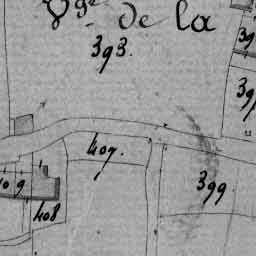 Vge de la
393.
39
39
407.
409
399.
408